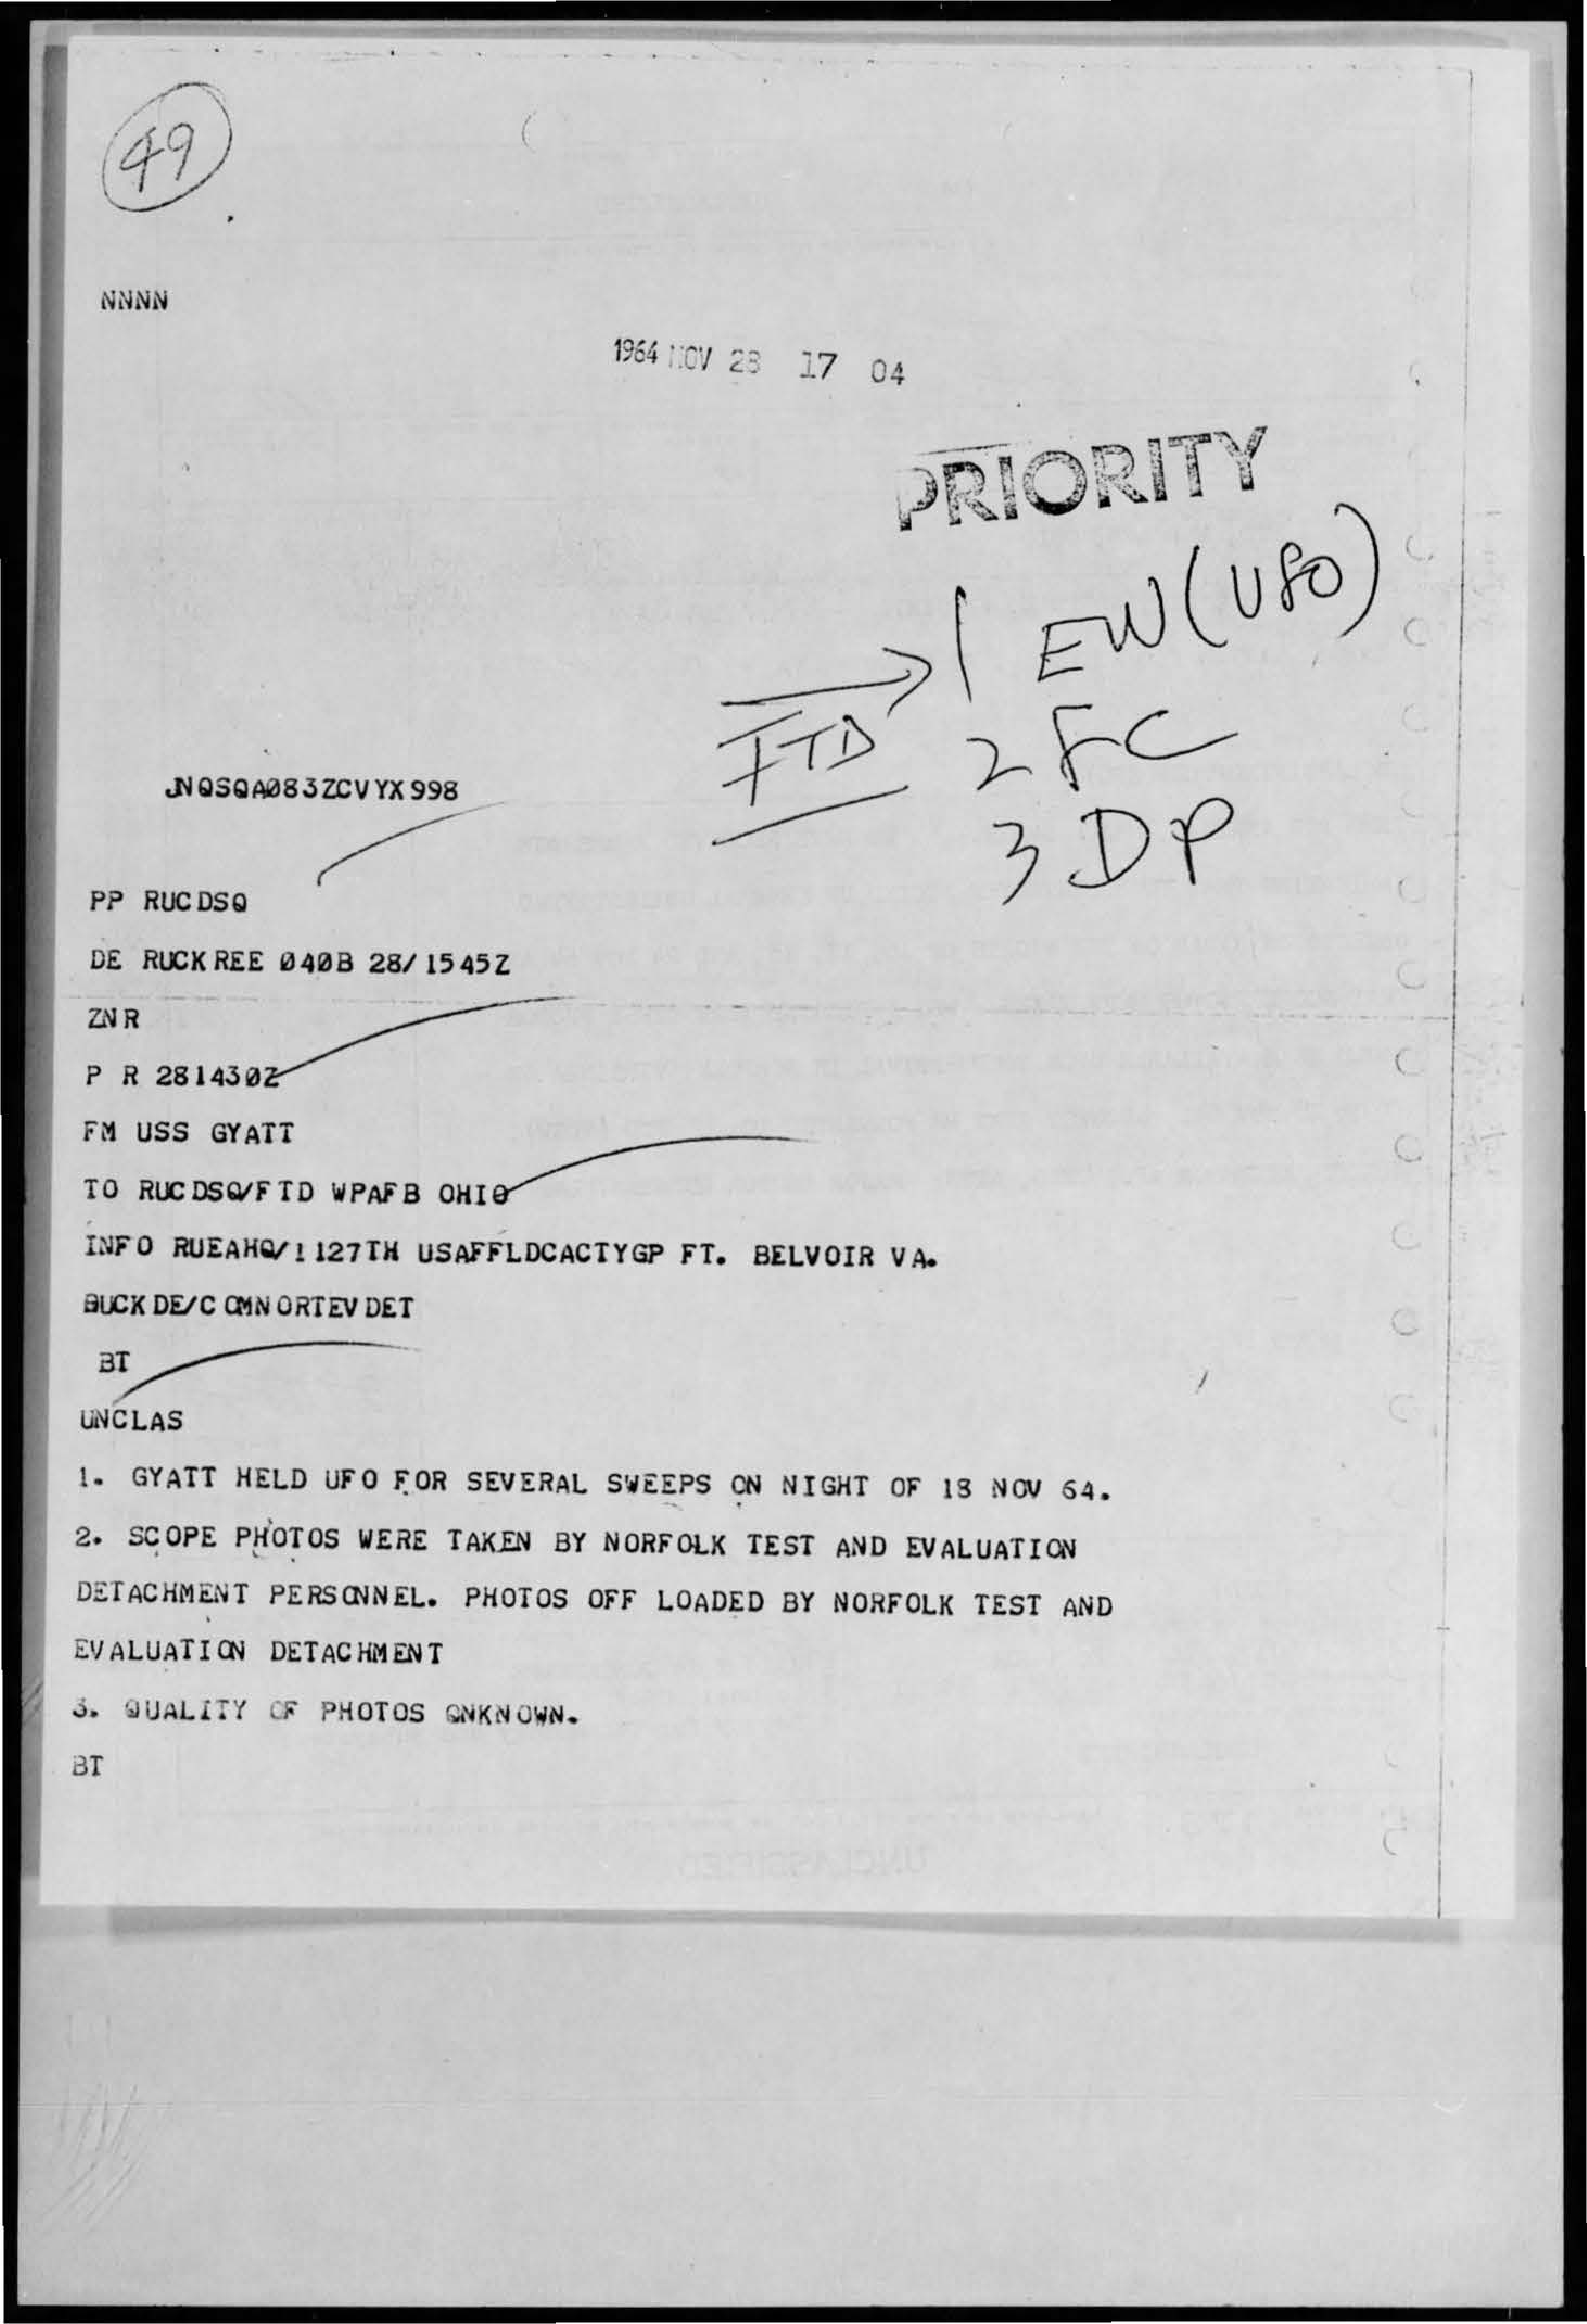 49
NNNN
1964 NOV 28 17 04
PRIORITY
1 EW (UFO)
FTD 2 FC
3 DP
JNQSQA083ZCVYX998
PP RUCDSQ
DE RUCKREE 040B 28/1545Z
ZNR
P R 281430Z
FM USS GYATT
TO RUCDSQ/FTD WPAFB OHIO
INFO RUEAHQ/1127TH USAFFLDCACTYGP FT. BELVOIR VA.
BUCKDE/COMNORTEVDET
BT
UNCLAS
1. GYATT HELD UFO FOR SEVERAL SWEEPS ON NIGHT OF 18 NOV 64.
2. SCOPE PHOTOS WERE TAKEN BY NORFOLK TEST AND EVALUATION
DETACHMENT PERSONNEL. PHOTOS OFF LOADED BY NORFOLK TEST AND
EVALUATION DETACHMENT
3. QUALITY OF PHOTOS QNKNOWN.
BT